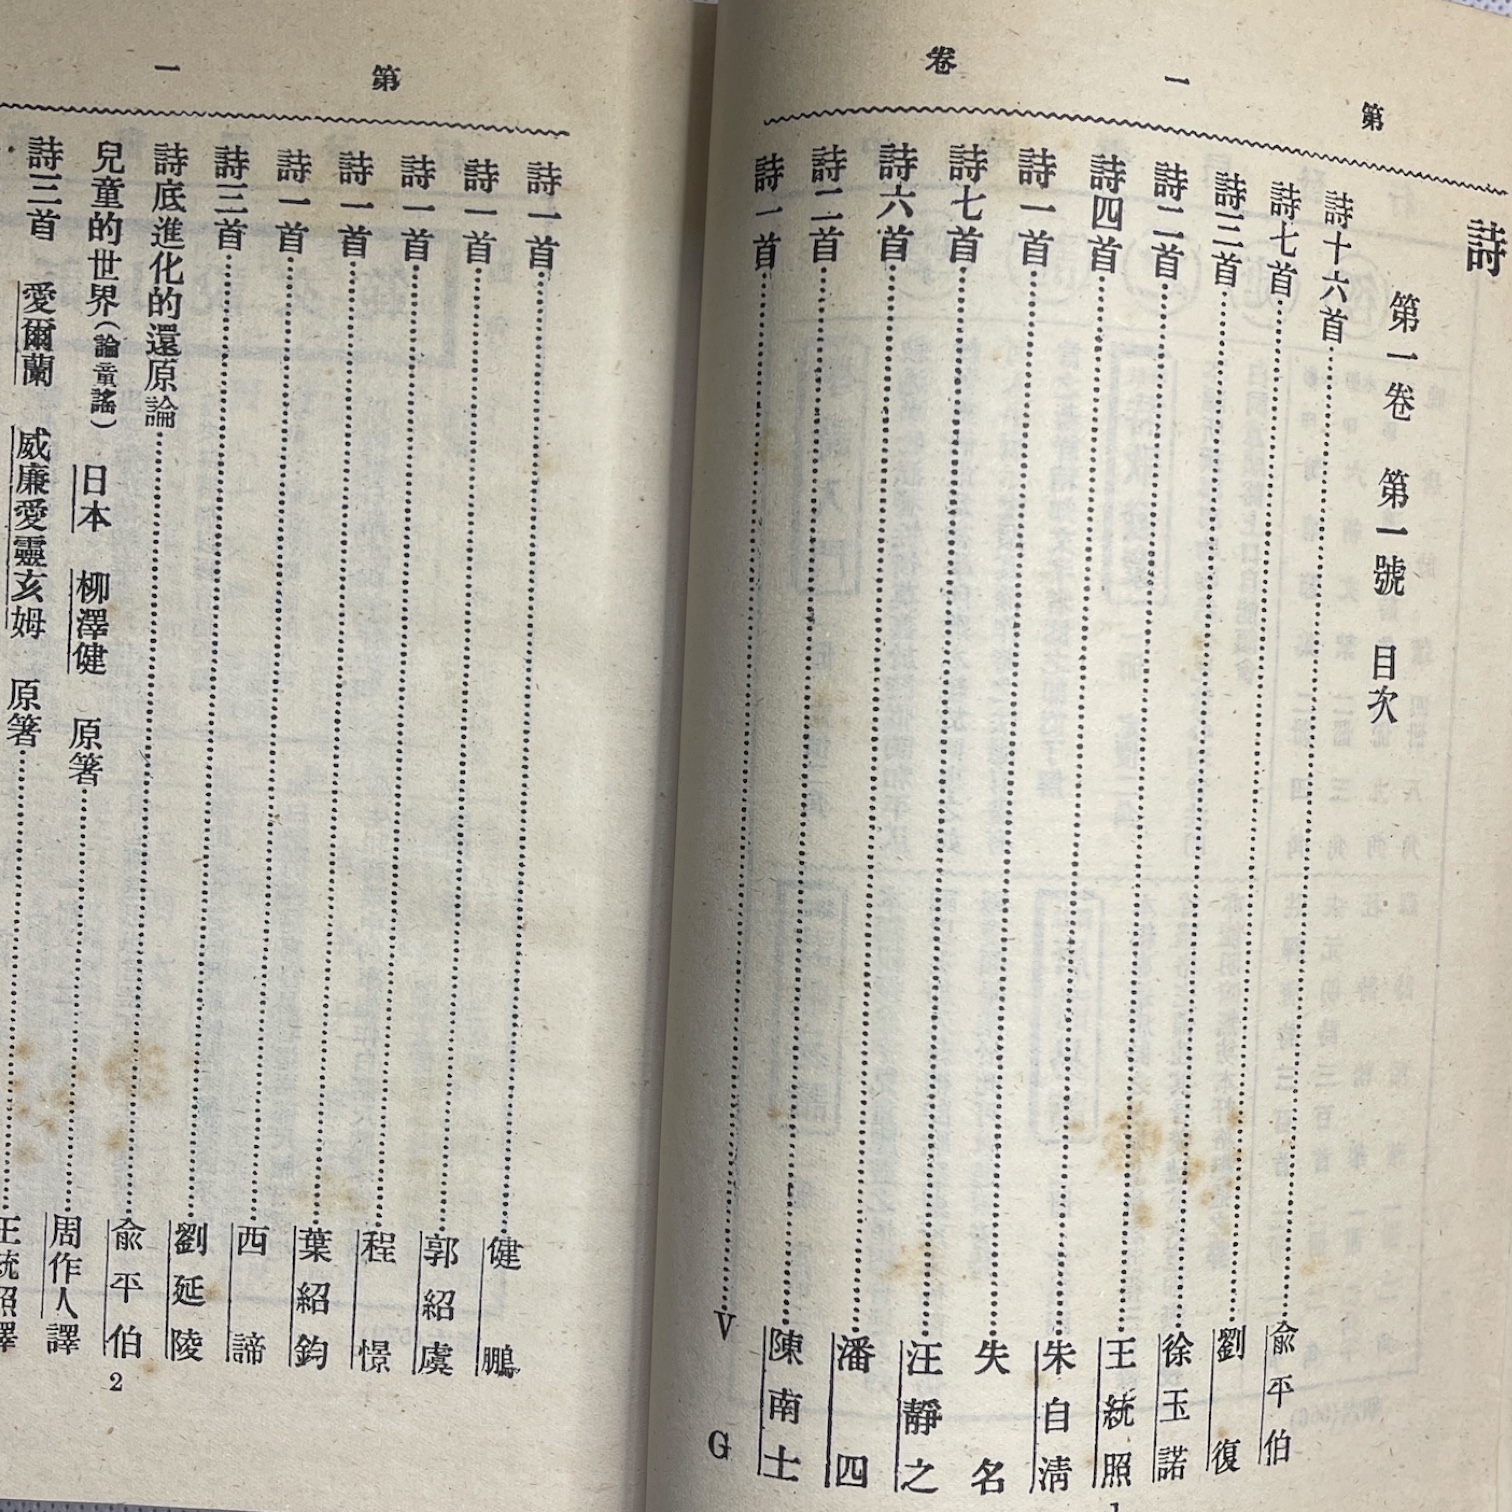 第一卷
詩
第一卷 第一號 目次
詩十六首……俞平伯
詩七首……劉復
詩三首……徐玉諾
詩二首……王統照
詩四首……朱自清
詩一首……失名
詩七首……汪靜之
詩六首……潘四
詩二首……陳南士
詩一首……V G
1
第一
詩一首……健鵬
詩一首……郭紹虞
詩一首……程憬
詩一首……葉紹鈞
詩一首……西諦
詩三首……劉延陵
詩底進化的還原論……俞平伯
兒童的世界(論童謠) 日本 柳澤健 原箸……周作人譯
詩三首 愛爾蘭 威廉愛靈亥姆 原箸……王統照譯
2